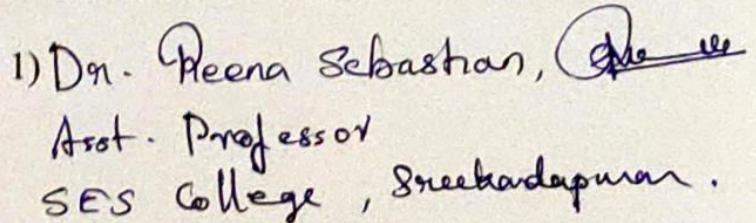 1) Dr. Reena Sebastian,
Asst. Professor
SES College, Sreekadapuram.